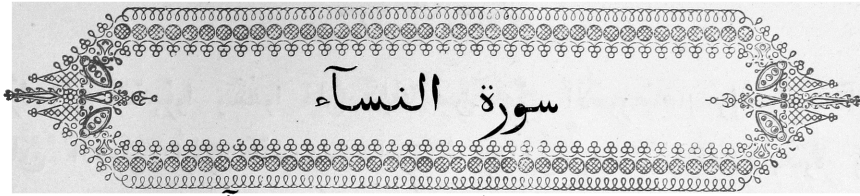 سورة النسآء